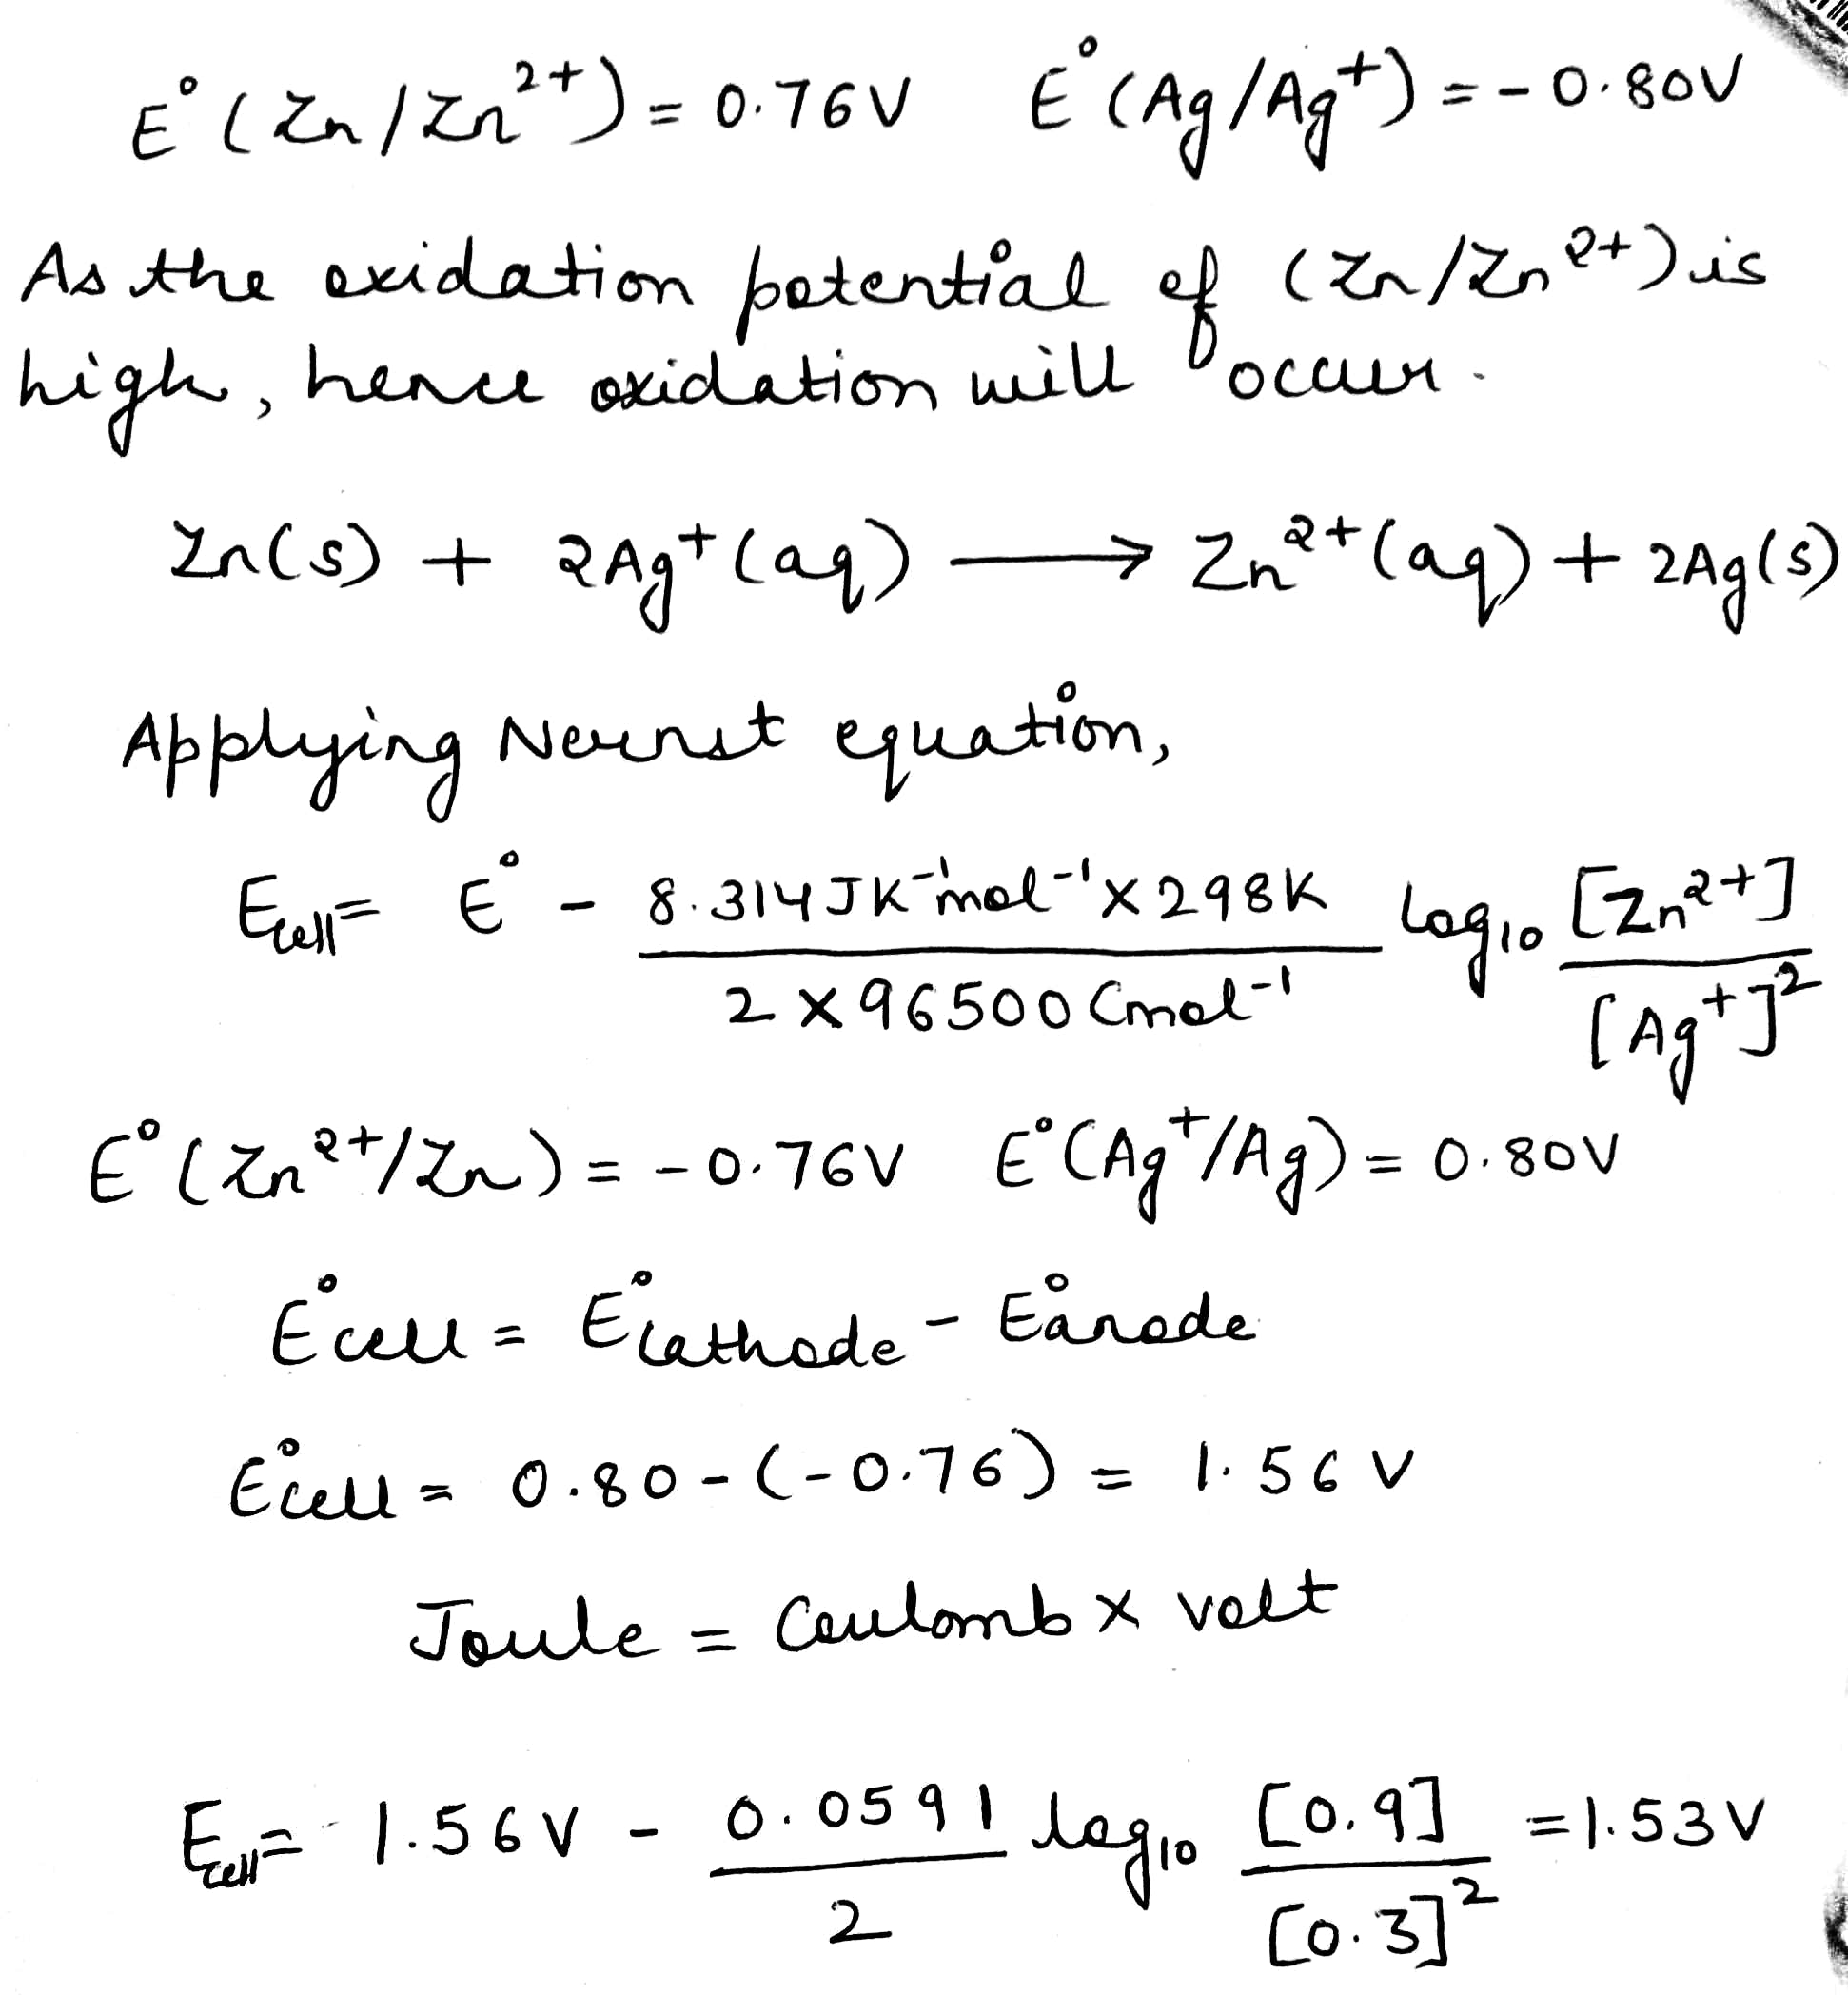 E°(Zn/Zn²⁺) = 0.76V E°(Ag/Ag⁺) = -0.80V
As the oxidation potential of (Zn/Zn²⁺) is
high, hence oxidation will occur.
Zn(s) + 2Ag⁺(aq) → Zn²⁺(aq) + 2Ag(s)
Applying Nernst equation,
Ecell = E° - 8.314 JK⁻¹mol⁻¹ x 298K / 2 x 96500 Cmol⁻¹ log₁₀ [Zn²⁺] / [Ag⁺]²
E°(Zn²⁺/Zn) = -0.76V E°(Ag⁺/Ag) = 0.80V
E°cell = E°cathode - E°anode
E°cell = 0.80-(-0.76) = 1.56 V
Joule = Coulomb x volt
Ecell = 1.56V - 0.0591 / 2 log₁₀ [0.9] / [0.3]² = 1.53V